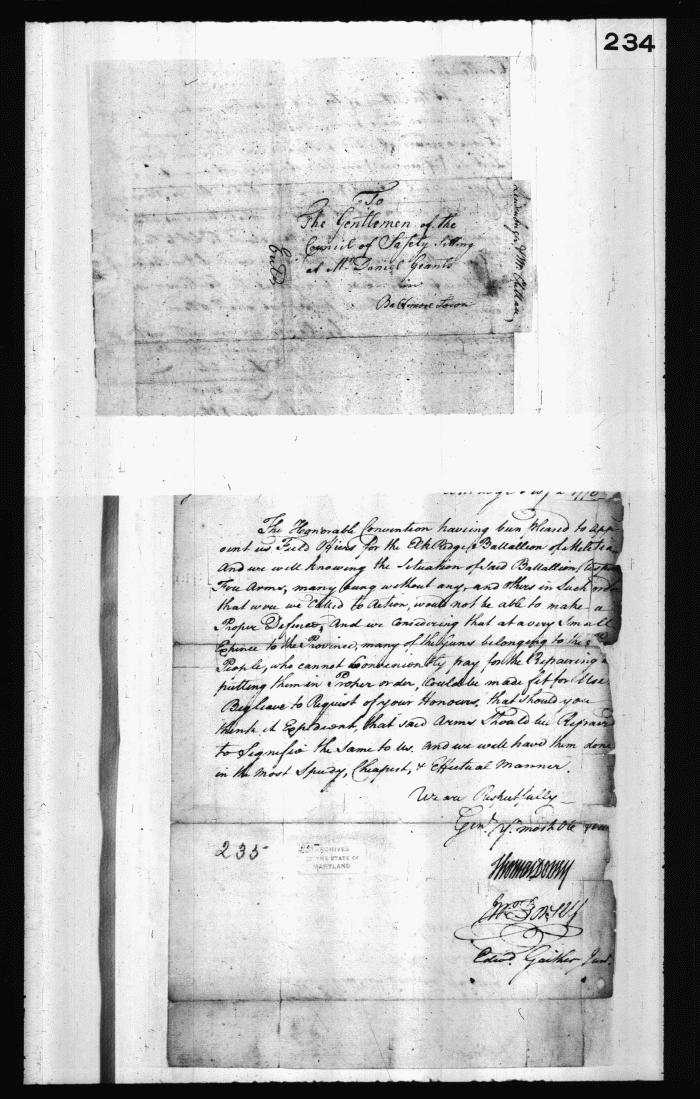 234
To
The Gentlemen of the
Council of Safety Sitting
at Mr. Daniel Grants
in
Baltimore Town
The Honorable Convention haveing been pleased to app
oint us Field Officers for the Elk Ridge Battallion of Melitea
And we well knowing the Situation of Said Battallion,
Fire Arms, many being without any, and others in Such order
that were we Called to Action, would not be able to make a
Proper Defence, And we Considering that at a very Small
Expence to the Province, many of the Guns belonging to the
People, who cannot Conveniently pay for the Repairing &
putting them in Proper order, Could be made fit for Use
Beg leave to Request of your Honours, that should you
think it Expedient, that said Arms Should be Repaired
to Signifie the Same to Us, and we well have them done
in the most Speedy, Cheapest, & Effectual Manner.
We are Respectfully
Gent. Yr. most Obe
235
ARCHIVES
OF THE STATE OF
MARYLAND
Thomas Dorsey
Edwd. Gaither Junr.